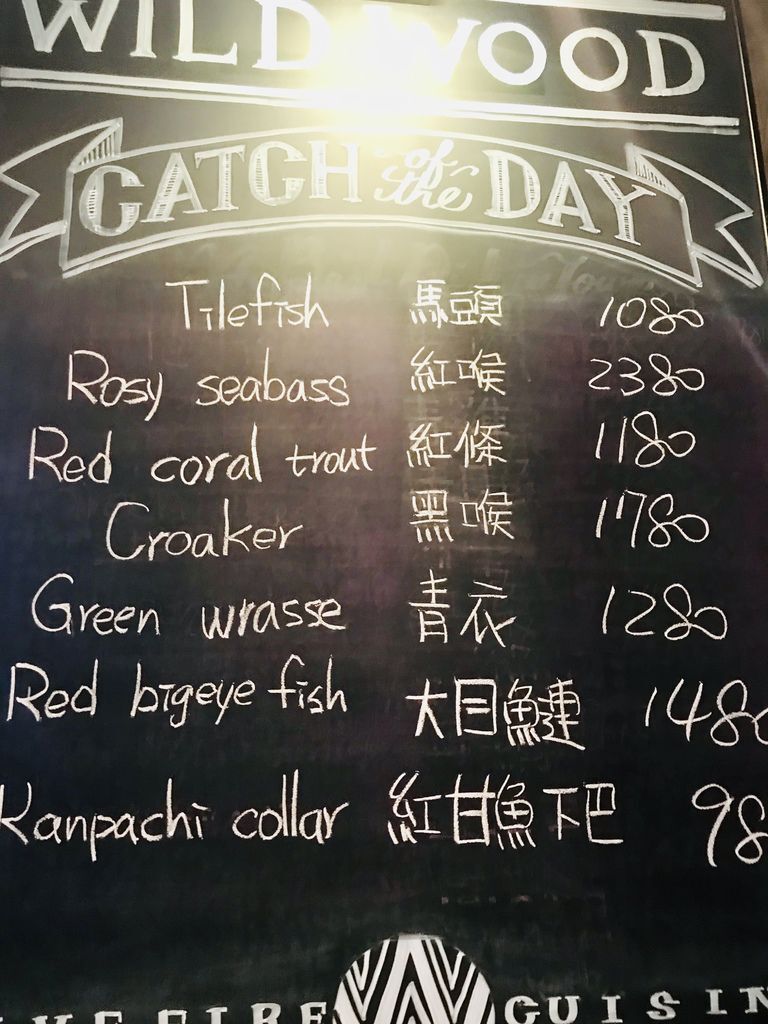 WILDWOOD
CATCH of the DAY
Tilefish 馬頭 1080
Rosy seabass 紅喉 2380
Red coral trout 紅條 1180
Croaker 黑喉 1780
Green wrasse 青衣 1280
Red bigeye fish 大目鰱 1480
Kanpachi collar 紅甘魚下巴 98
FIRE CUISIN